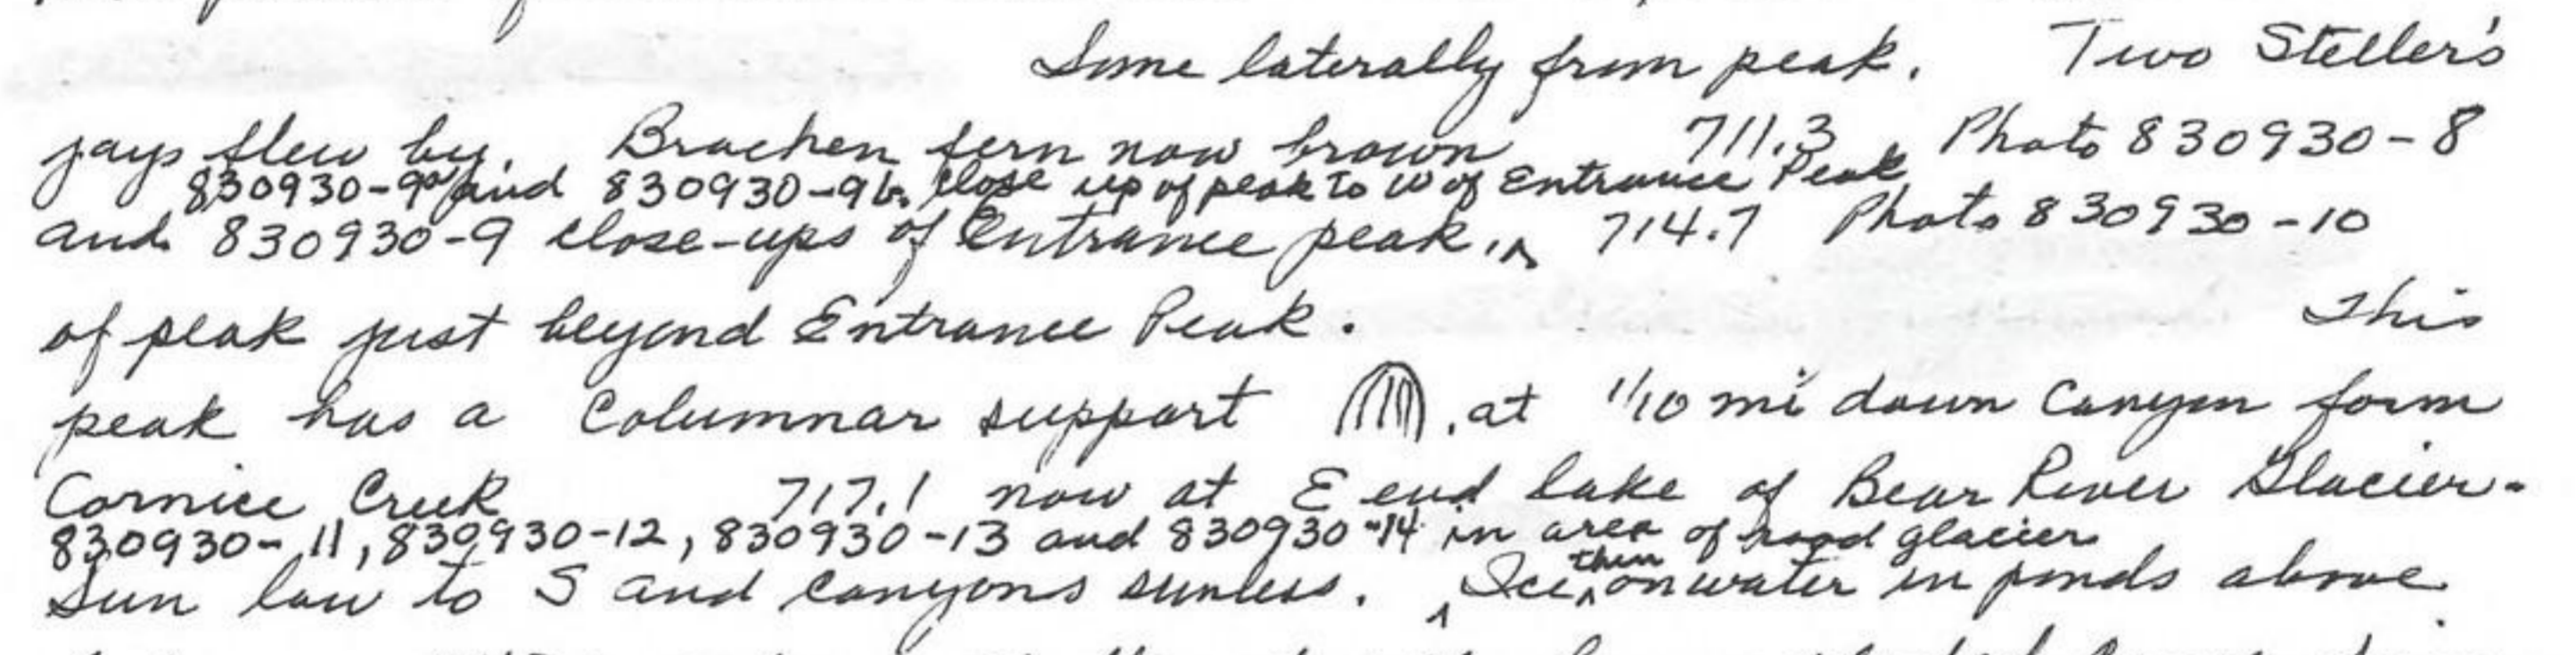 Some laterally from peak. Two Steller's
jays flew by. Brachen fern now brown 711.3 Photo 830930-8
830930-9a and 830930-9b. Close up of peak to W of Entrance Peak
and 830930-9 close-ups of Entrance peak. ^ 714.7 Photo 830930-10
of peak just beyond Entrance Peak. This
peak has a Columnar support . at 1/10 mi down Canyon form
Cornice Creek 717.1 now at E end lake of Bear River Glacier-
830930-11, 830930-12, 830930-13 and 830930-14 in area of road glacier
then
Sun low to S and canyons sunless. ^ Ice ^ on water in ponds above